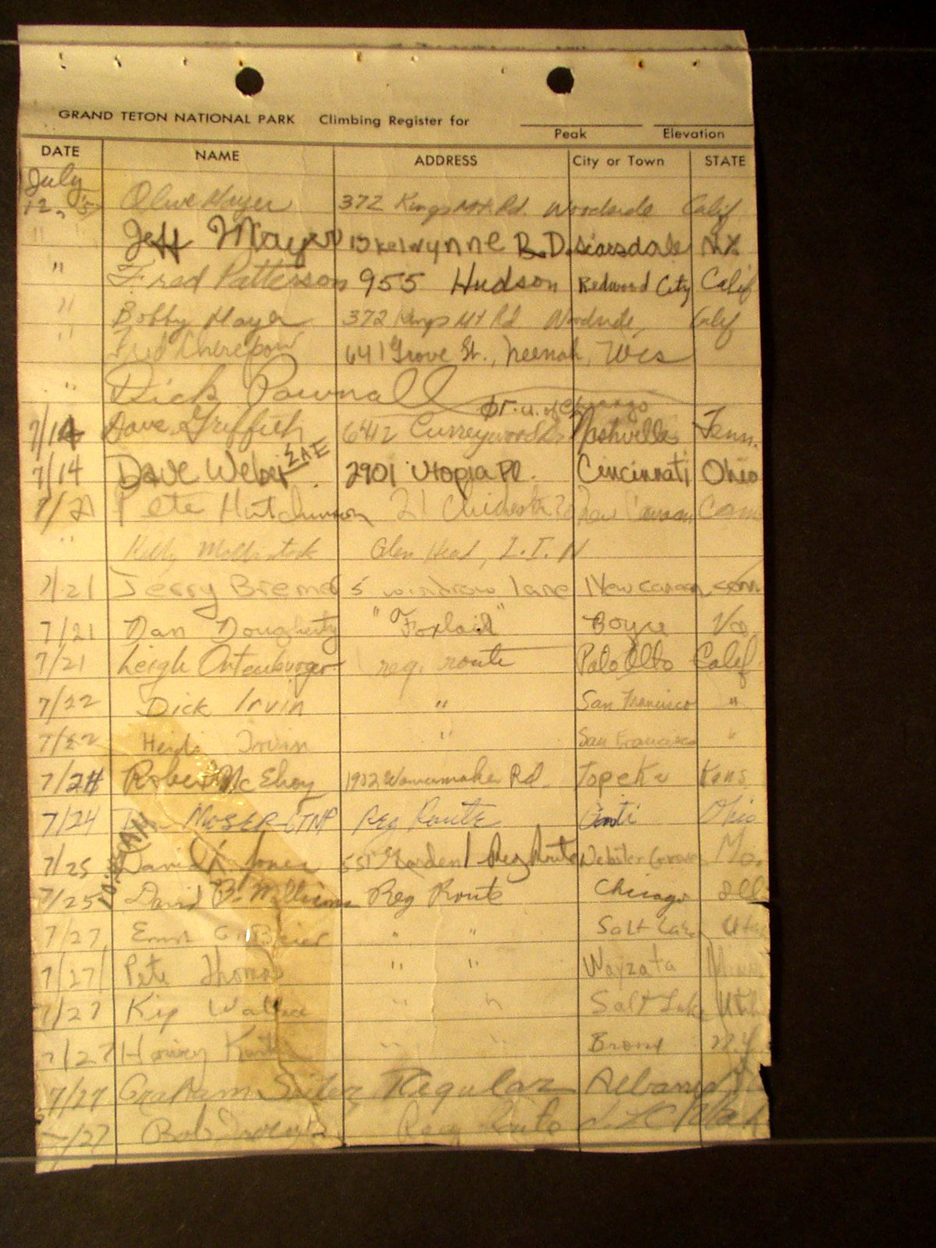 GRAND TETON NATIONAL PARK Climbing Register for
Peak Elevation
DATE NAME ADDRESS City or Town STATE
July
12, Olive Mayer 372 Kings Mt. Rd. Woodside Calif
" Jeff Mayer 13 Kelwynne R.D. Scarsdale N.Y.
" Fred Patterson 955 Hudson Redwood City Calif
" Bobby Mayer 372 Kings Mt Rd Woodside, Calif
" Fred 641 Grove St., Neenah, Wis
" Dick Pownall
St. U. of Chicago
7/14 Dave Griffith 6412 Nashville Tenn.
7/14 Dave Weber ΣAE 2901 Utopia Pl. Cincinnati Ohio
7/21 Pete Hutchinson 21 New Canaan Conn
" Glen Head, L.I. N
7/21 Jerry 5 lane New Canaan Conn.
7/21 Dan Dougherty " " Boyce Va
7/21 Leigh Ortenburger reg. route Palo Alto Calif.
7/22 Dick Irvin " San Francisco "
7/22 Irvin " San Francisco "
7/24 Robert McElroy Rd. Topeka Kans
7/24 Moser GTNP Reg Route Ohio
7/25 Jones 551 Reg Route Webster Groves Mo.
7/25 David B. Williams Reg Route Chicago Ill
7/27 " " Salt Lake Utah
7/27 Pete Thomas " " Wayzata Minn
7/27 Kip Wallace " " Salt Lake Utah
7/27 Harvey " " Bronx N.Y.
7/27 Graham Regular Albany
7/27 Bob Reg Route S.L.C. Utah